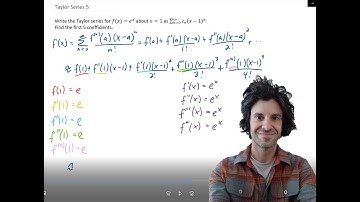 Taylor Series 5
Write the Taylor series for f(x) = eˣ about x = 1 as ∑ cₙ(x − 1)ⁿ
Find the first 5 coefficients.
f(x) = ∑ f⁽ⁿ⁾(a)(x-a)ⁿ / n! = f(a) + f'(a)(x-a) / 1! + f''(a)(x-a)² / 2! + ...
≈ f(1) + f'(1)(x-1) / 1! + f''(1)(x-1)² / 2! + f'''(1)(x-1)³ / 3! + f⁽⁴⁾(1)(x-1)⁴ / 4!
f(1) = e
f'(x) = eˣ
f'(1) = e
f''(x) = eˣ
f''(1) = e
f'''(x) = eˣ
f'''(1) = e